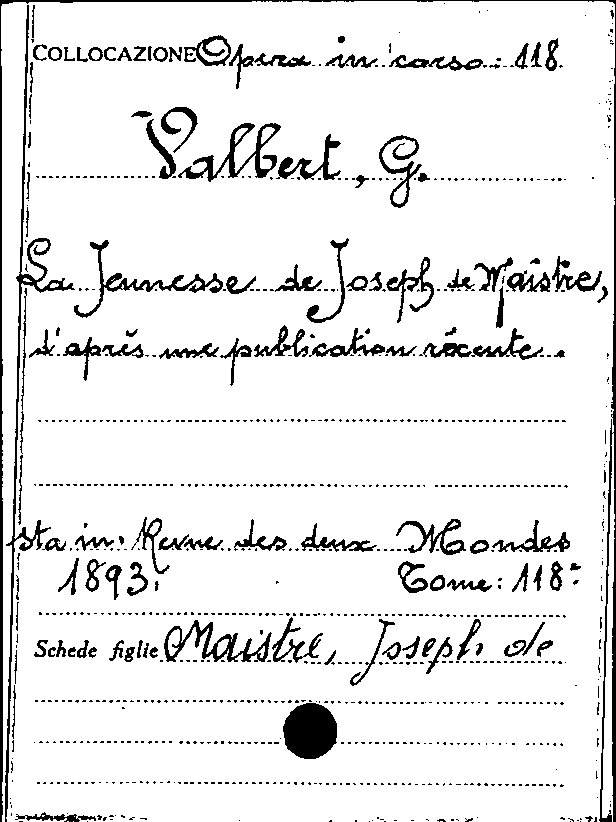 COLLOCAZIONE Opera in corso: 118
Valbert, G.
La Jeunesse de Joseph de Maistre,
d'après une publication récente.
sta in: Revue des deux Mondes
1893. Tome: 118º
Schede figlie Maistre, Joseph de